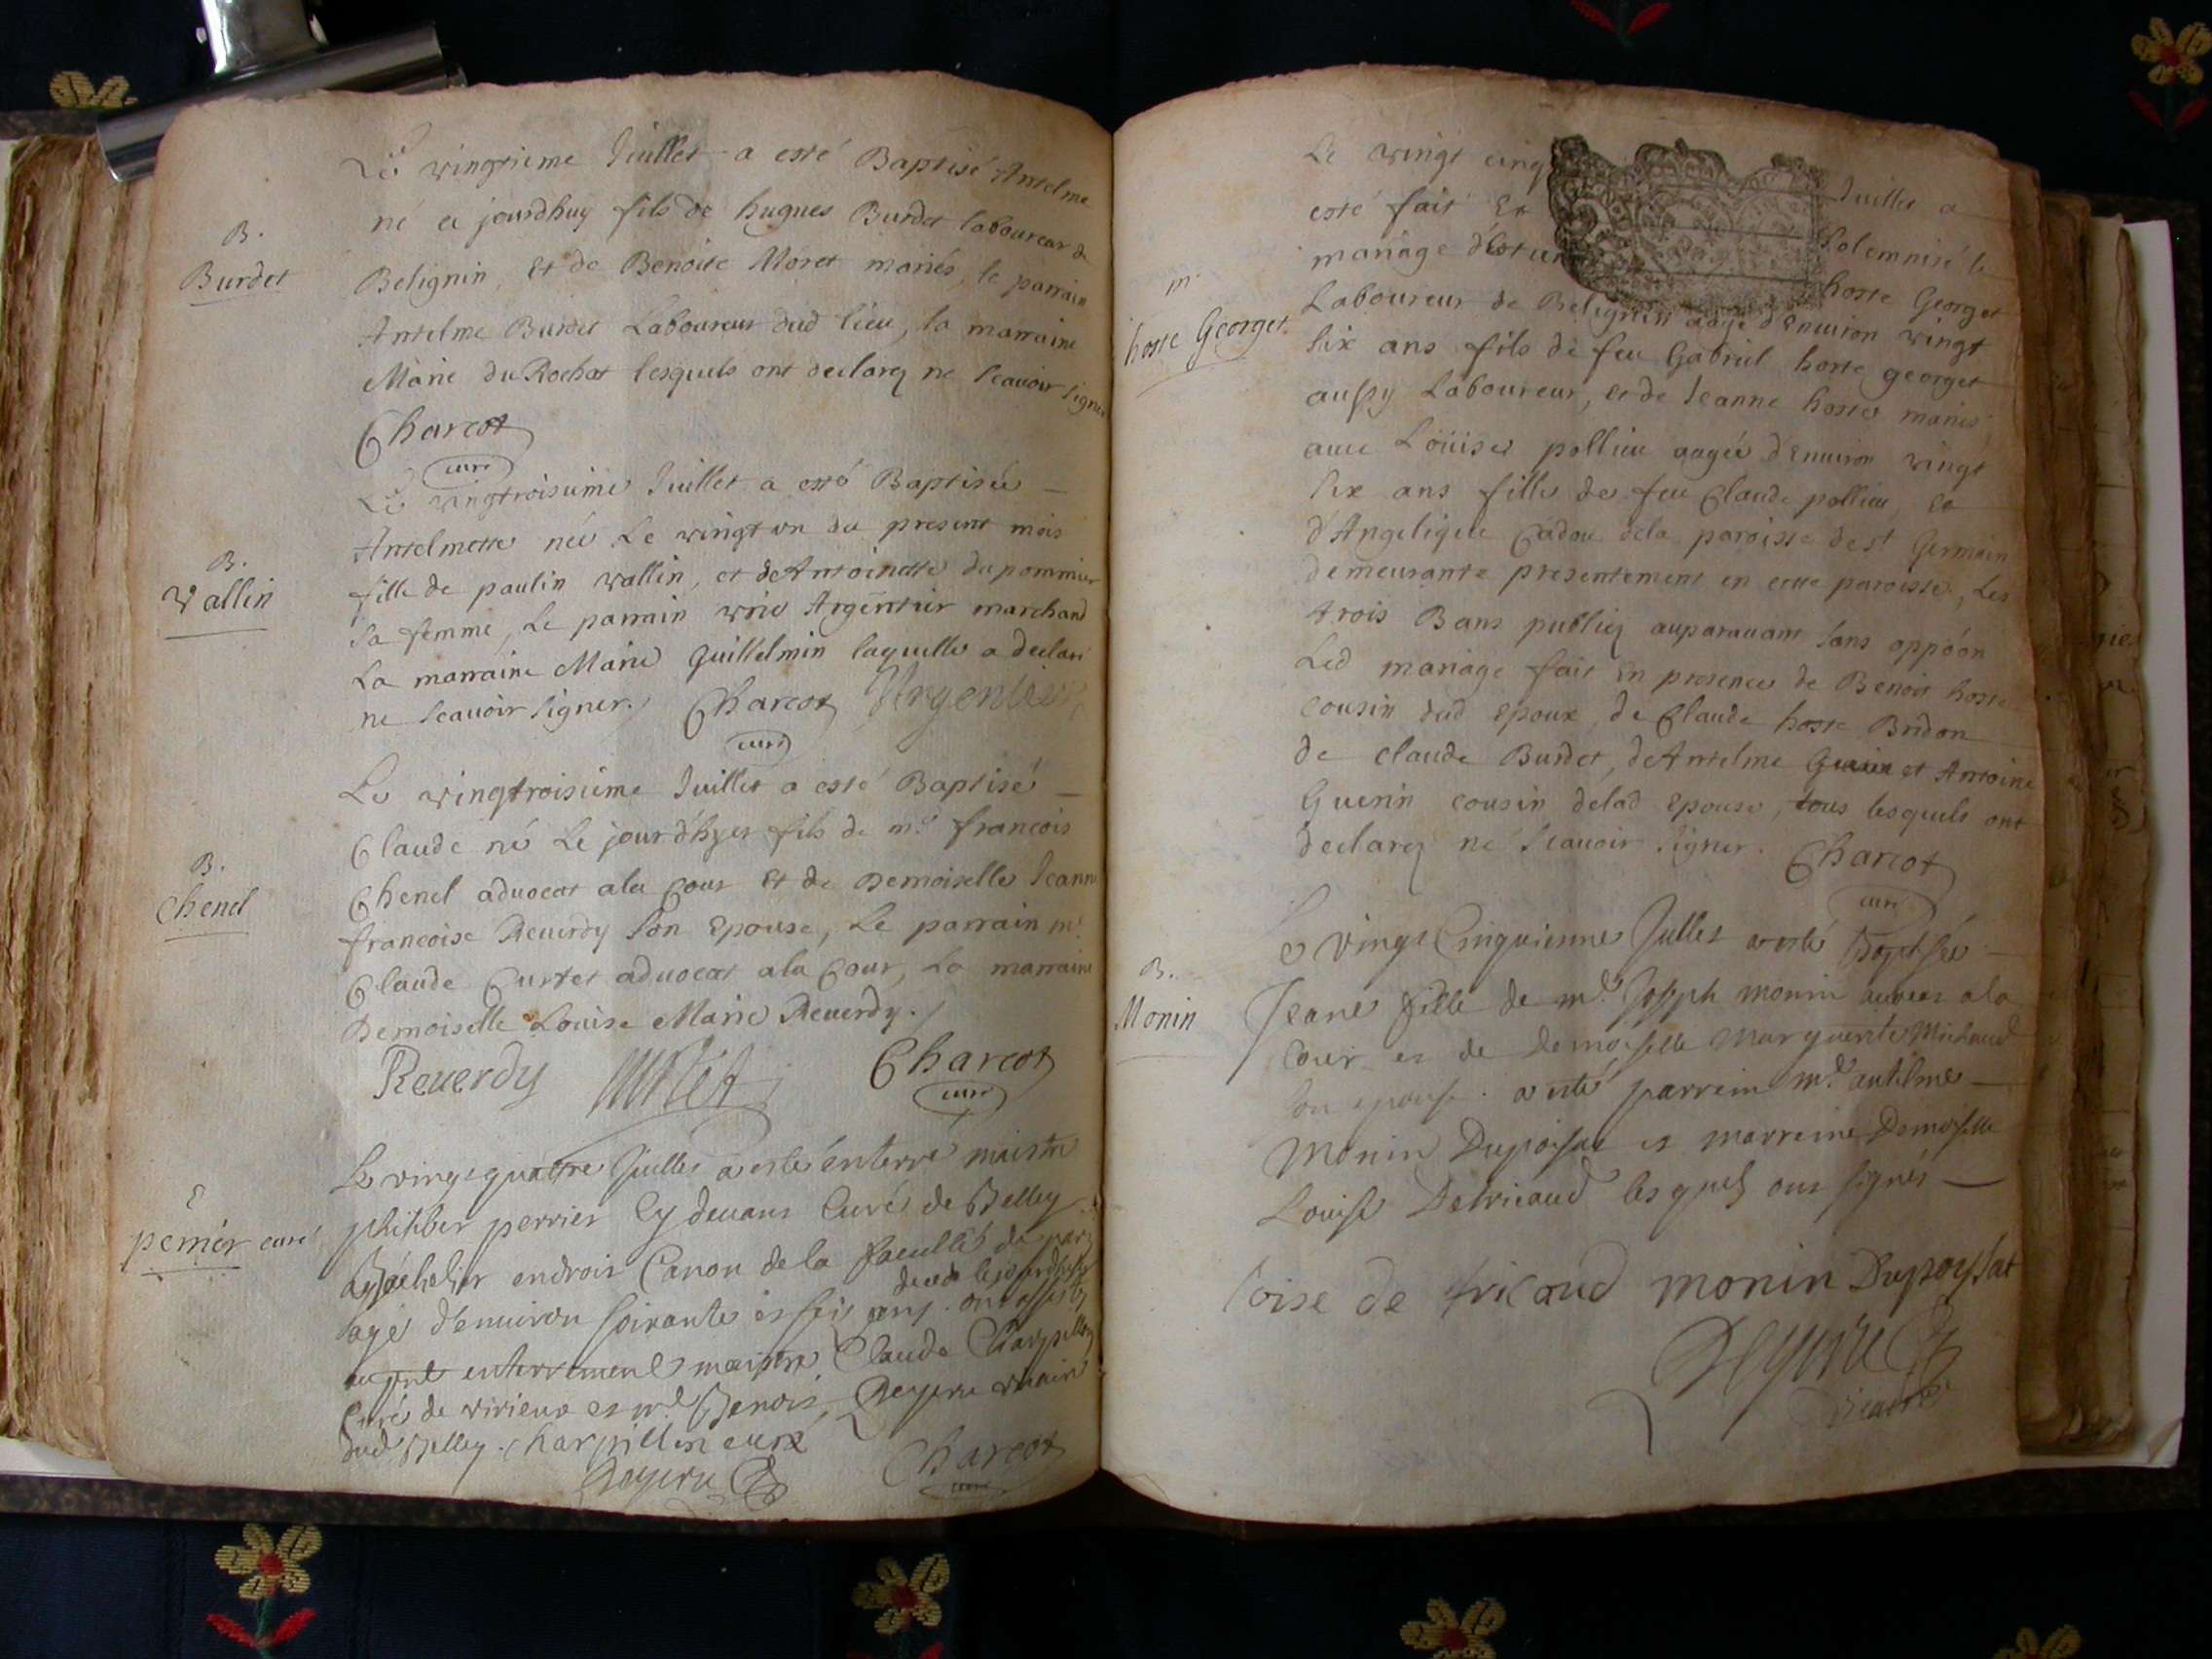 Le vingtieme Juillet a esté Baptisé Antelme
né ce jourdhuy fils de hugues Burdet laboureur de
B.
Burdet
Belignin, Et de Benoite Moret mariés, le parrain
Antelme Burdet Laboureur dud lieu, la marraine
Marie du Rochat lesquels ont declarez ne scavoir signer
Charcot
curé
Le vingtroisieme Juillet a esté Baptisée
Antelmette née Le vingt un du present mois
B.
Vallin
fille de paulin vallin, et de Antoinette du pommier
sa femme, Le parrain Argentier marchand
La marraine Marie Guillelmin laquelle a declaré
ne scavoir signer. Charcot Argentier
curé
Le vingtroisieme Juillet a esté Baptisé
Claude né Le jour d'hyer fils de mr francois
B.
Chenel
Chenel advocat ala Cour Et de Demoiselle Jeanne
francoise Reverdy son Epouse, Le parrain mr
Claude Curtet advocat ala Cour, La marraine
Demoiselle Louise Marie Reverdy.
Reverdy Curtet Charcot
curé
Le vingt quattre Juillet a esté enterré maistre
E
perrier curé
philiber perrier Cy devant Curé de Belley
Bachelier endroit Canon de la faculté de paris
decedé le jourdhyer
agé d'environ soixante et six ans. ont assistez
au enterrement maistre Claude Charpillon
Curé de virieux et mr Benoit Reyeru vicaire
dud Belley. Charpillon curé
Reyeru Charcot
curé
Le vingt cinq Juillet a
esté fait Et solemnisé le
mariage d' hoste Georget
m.
hoste Georget
Laboureur de Belignin aagé d'Environ vingt
six ans fils de feu Gabriel hoste georget
aussy Laboureur, et de Jeanne hoste mariés,
avec Loüise pollieu aagée d'Environ vingt
six ans fille de feu Claude pollieu, Et
d'Angelique Cadou dela paroisse de st Germain
demeurante presentement en cette paroisse, Les
trois Bans publiez auparavant sans oppôon
Led mariage fait En presence de Benoit hoste
cousin dud Epoux, de Claude hoste Bridon
de claude Burdet, de Antelme Guerin et Antoine
Guerin cousin delad Epouse, tous lesquels ont
declarez ne scavoir signer. Charcot
curé
Le vingt Cinquiesme Jullet a esté Baptisée
B.
Monin
Jeane fille de mr Joseph monin advocat a la
Cour et de Demoiselle Marguerite Michaud
son epouse. a esté parrein mr antelme
Monin Dupoisat et marreine Demoiselle
Louise Detricaud les quels ont signés
loise de tricaud monin Dupoysat
Reyeru
vicaire